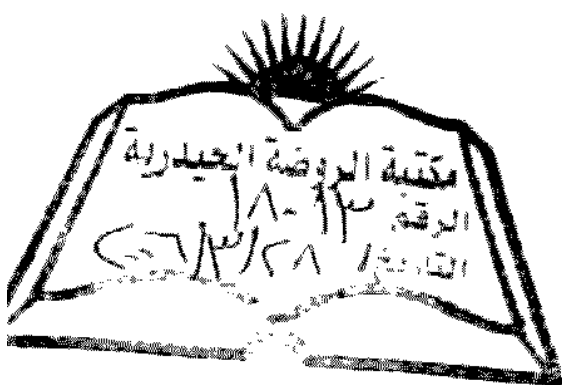 مكتبة الروضة الحيدرية
الرقم ١٨٠١٣
التاريخ ٢٠٠٦/٣/٢٨